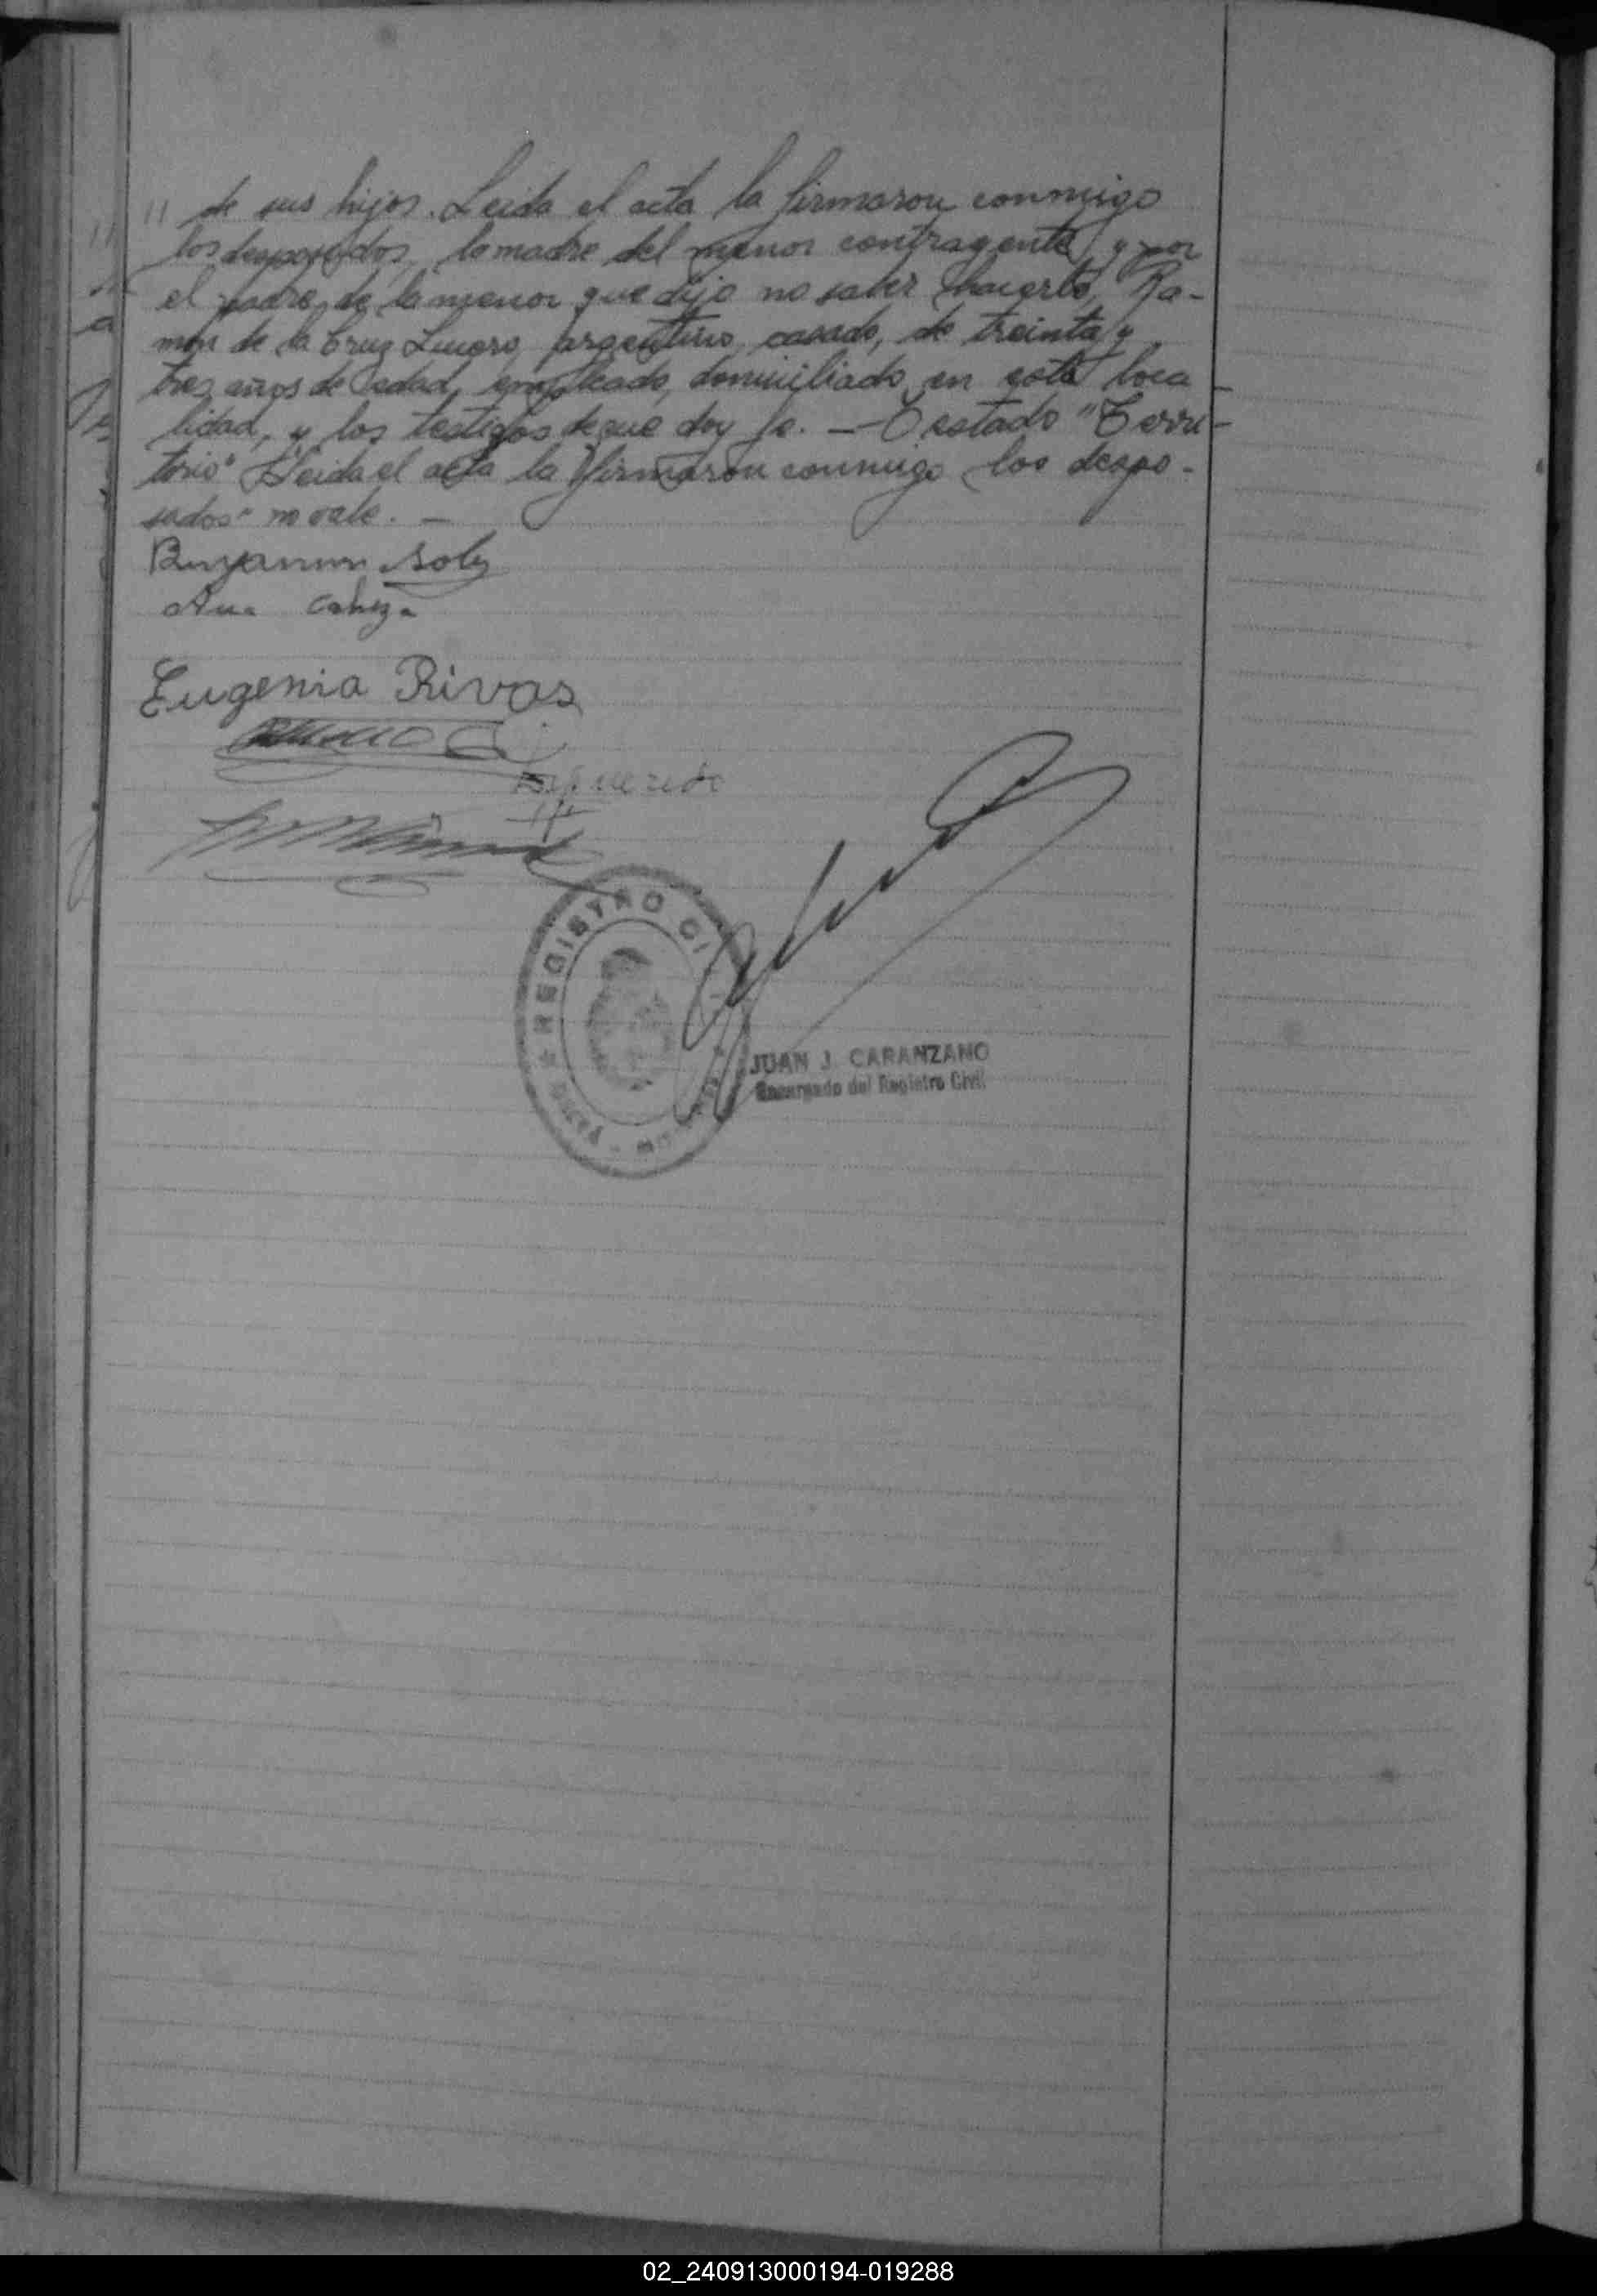 // de sus hijos. Leida el acta la firmaron conmigo
los desposados, la madre del menor contrayente y por
el padre de la menor que dijo no saber hacerlo, Ra-
món de la Cruz Lucero, argentino, casado, de treinta y
tres años de edad, empleado, domiciliado en esta loca-
lidad, y los testigos de que doy fe. — Testado "Terri-
torio" "Leida el acta la firmaron conmigo los despo-
sados" no vale. —
Ana Cabeza
Eugenia Rivas
REGISTRO CI
JUAN J. CARANZANO
Encargado del Registro Civil
02_240913000194-019288